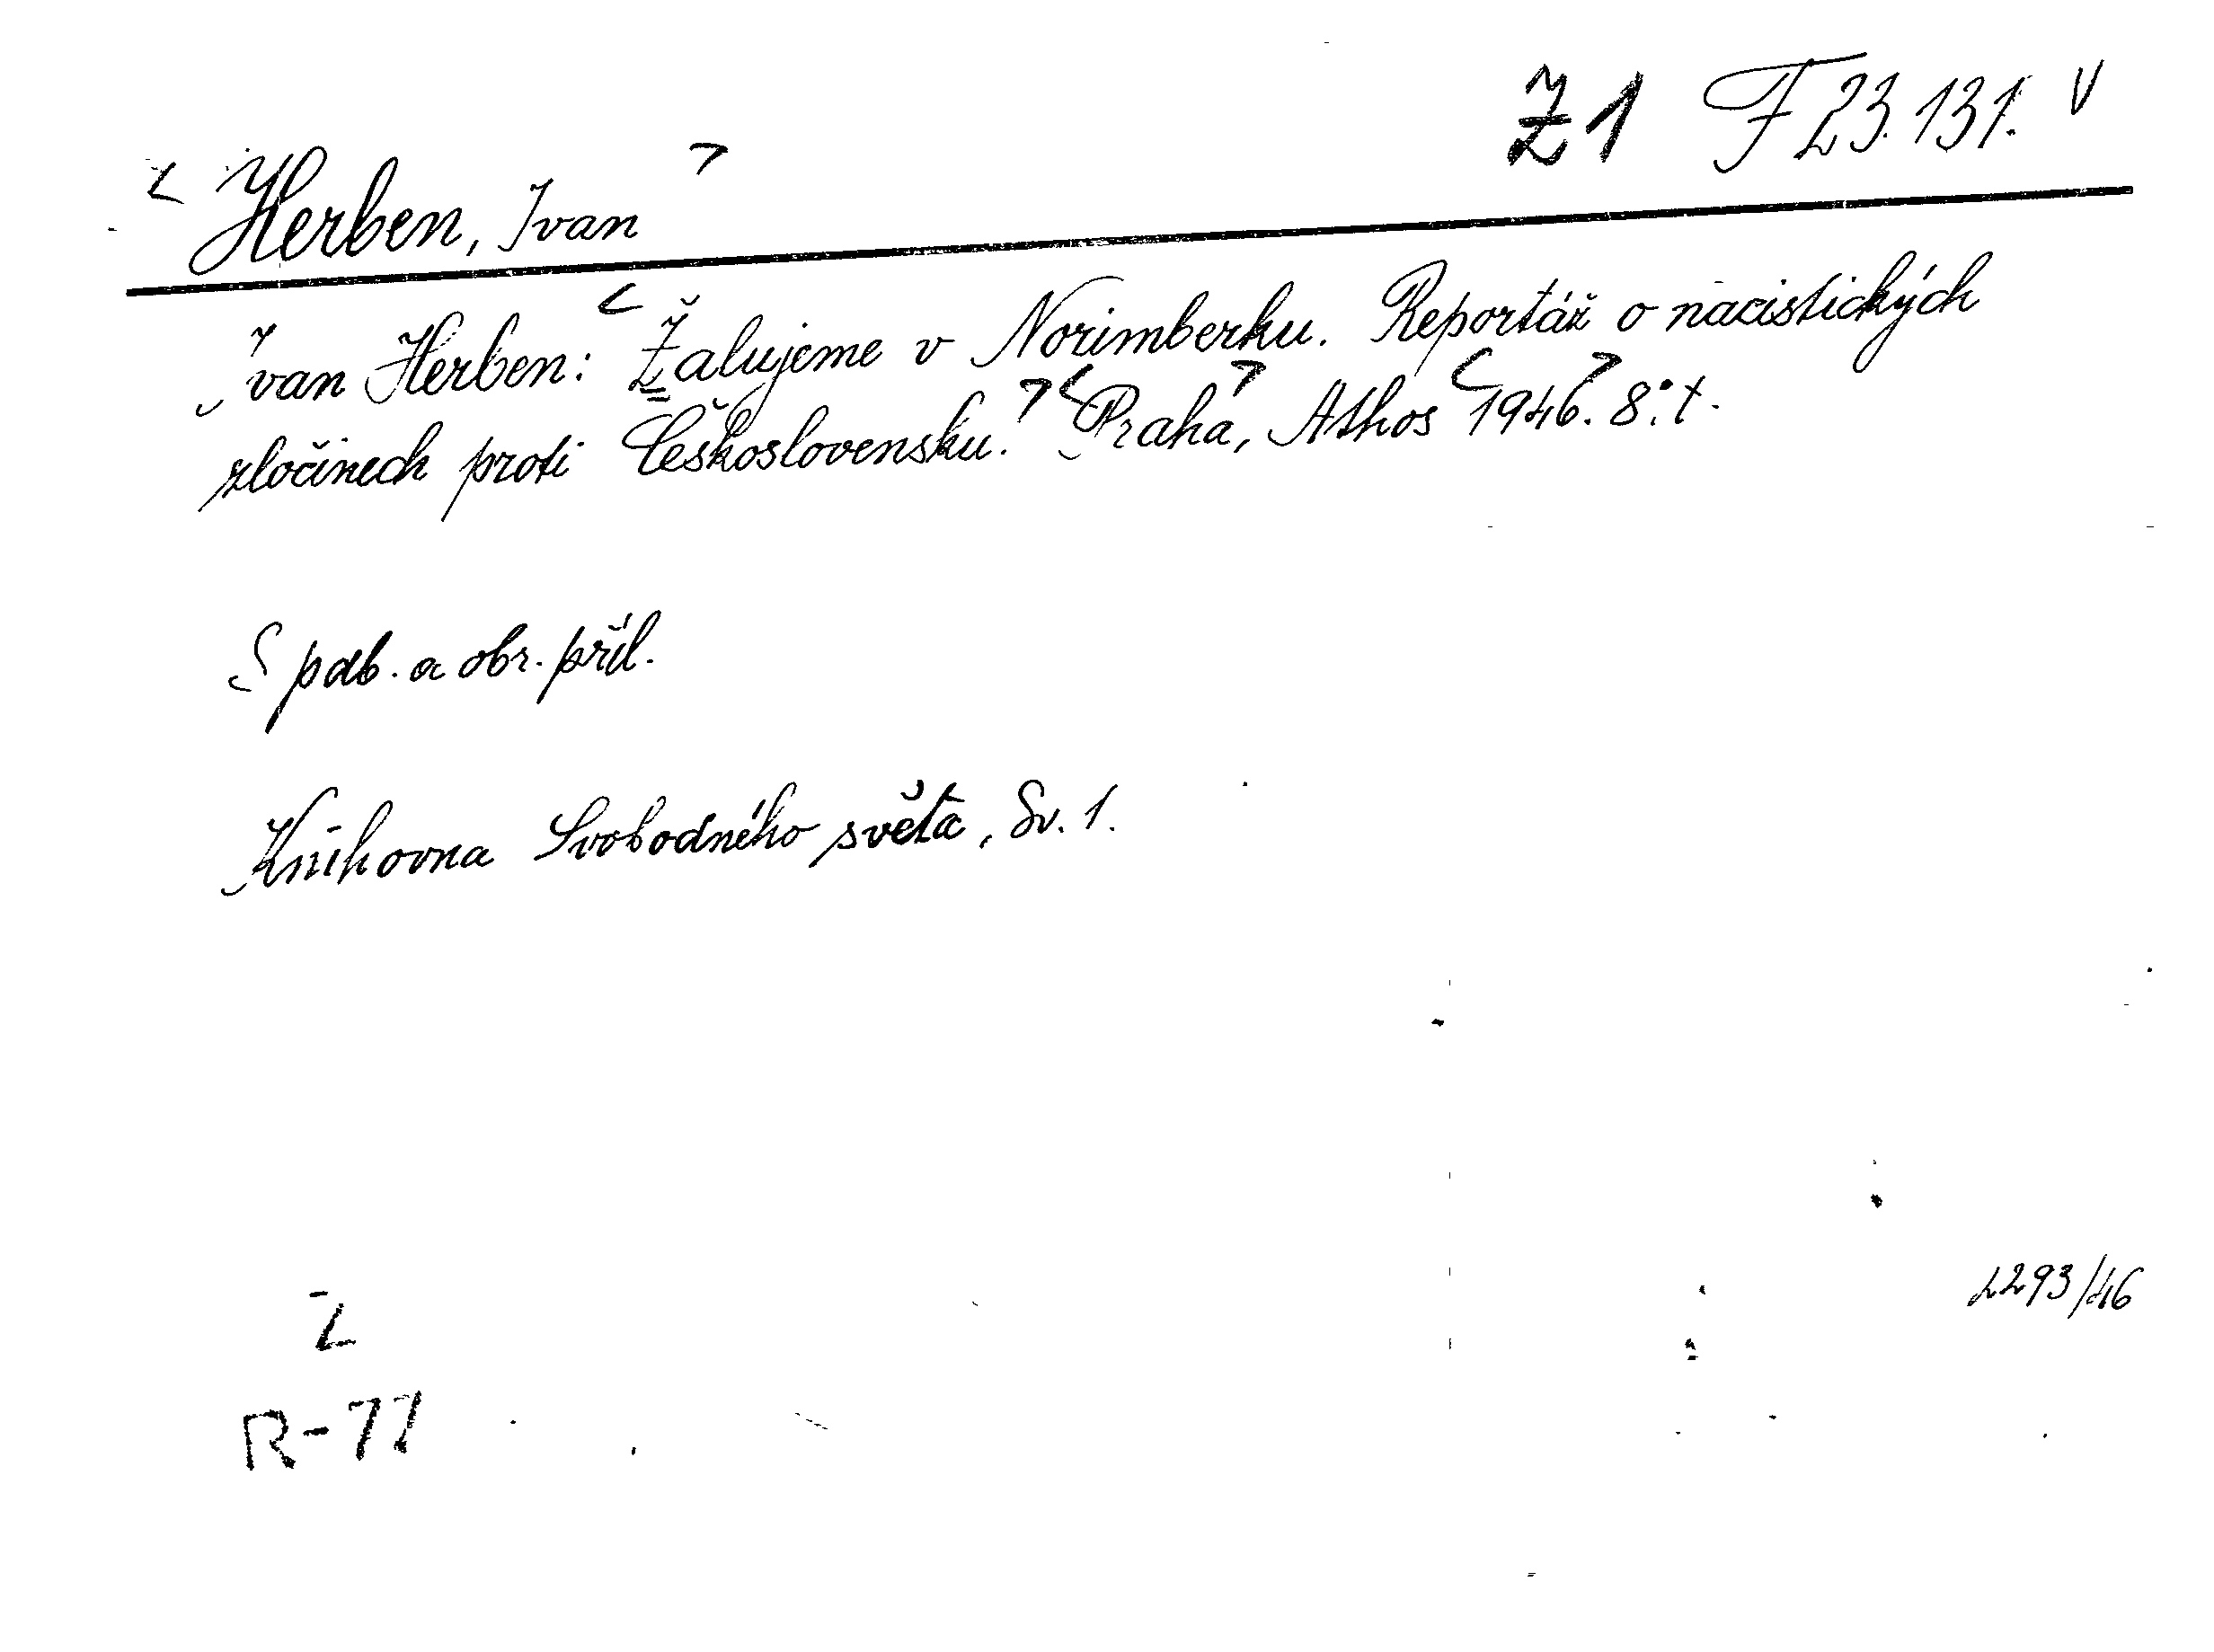 Z1 F 23.131. V
< Herben, Ivan >
Ivan Herben: < Žalujeme v Norimberku. Reportáž o nacistických
zločinech proti Československu. > < Praha >, Athos < 1946 >. 8°. t.
S pdb. a obr. příl.
Knihovna Svobodného světa, Sv. 1.
2293/46
Z
R-77